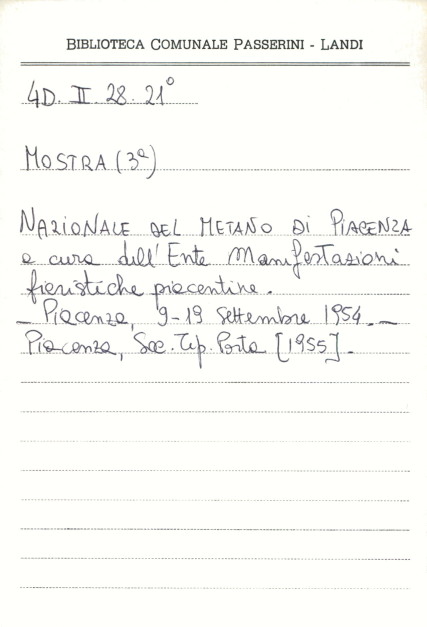 BIBLIOTECA COMUNALE PASSERINI - LANDI
4D. II. 28. 21°
MOSTRA (3ª)
NAZIONALE DEL METANO DI PIACENZA
a cura dell'Ente Manifestazioni
fieristiche piacentine.
_ Piacenza, 9-19 Settembre 1954._
Piacenza, Soc. Tip. Porta [1955].